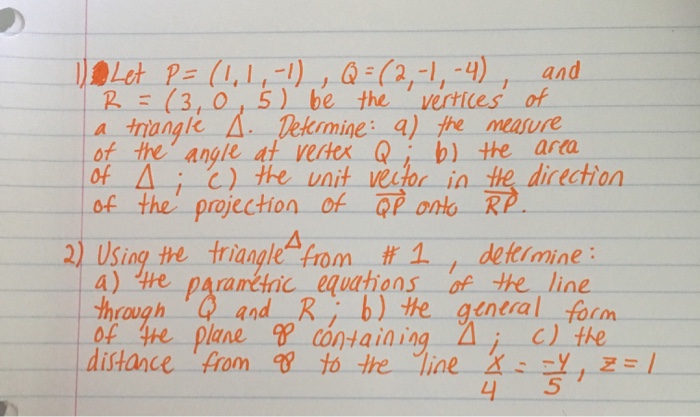 1) Let P = (1, 1, -1), Q = (2, -1, -4), and
R = (3, 0, 5) be the vertices of
a triangle Δ. Determine: a) the measure
of the angle at vertex Q; b) the area
of Δ; c) the unit vector in the direction
of the projection of QP onto RP.
2) Using the triangle Δ from #1, determine:
a) the parametric equations of the line
through Q and R; b) the general form
of the plane ℘ containing Δ; c) the
distance from ℘ to the line x/4 = -y/5, z = 1